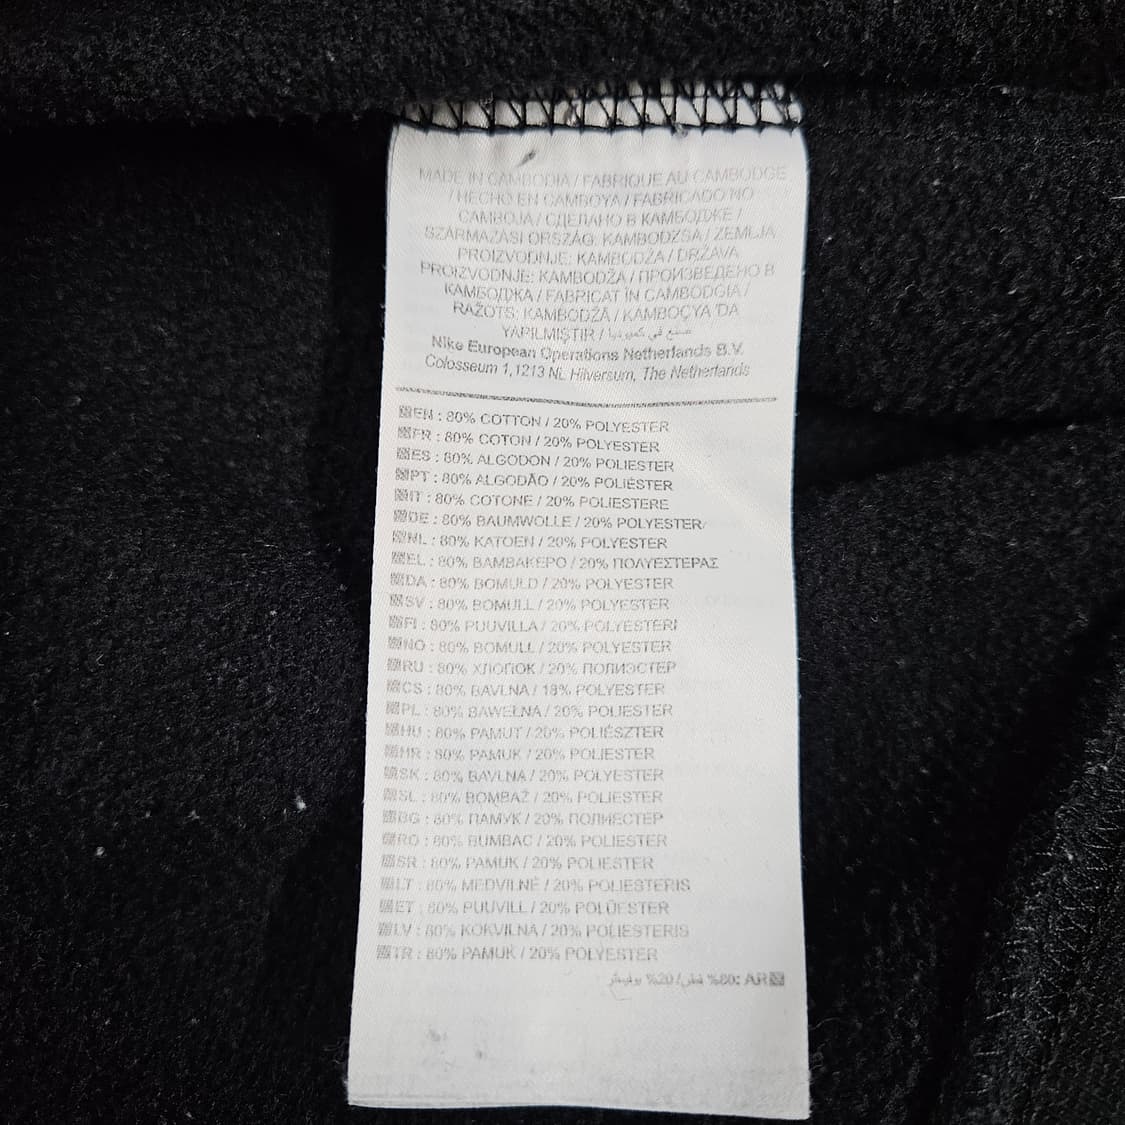 MADE IN CAMBODIA / FABRIQUE AU CAMBODGE
/ HECHO EN CAMBOYA / FABRICADO NO
CAMBOJA / СДЕЛАНО В КАМБОДЖЕ /
SZÁRMAZÁSI ORSZÁG: KAMBODZSA / ZEMLJA
PROIZVODNJE: KAMBODŽA / DRŽAVA
PROIZVODNJE: KAMBODŽA / ПРОИЗВЕДЕНО В
КАМБОДЖА / FABRICAT ÎN CAMBODGIA /
RAŽOTS: KAMBODŽĀ / KAMBOÇYA 'DA
YAPILMIŞTIR / صنع في كمبوديا
Nike European Operations Netherlands B.V.
Colosseum 1,1213 NL Hilversum, The Netherlands
EN : 80% COTTON / 20% POLYESTER
FR : 80% COTON / 20% POLYESTER
ES : 80% ALGODON / 20% POLIESTER
PT : 80% ALGODÃO / 20% POLIÉSTER
IT : 80% COTONE / 20% POLIESTERE
DE : 80% BAUMWOLLE / 20% POLYESTER
NL : 80% KATOEN / 20% POLYESTER
EL : 80% ΒΑΜΒΑΚΕΡΟ / 20% ΠΟΛΥΕΣΤΕΡΑΣ
DA : 80% BOMULD / 20% POLYESTER
SV : 80% BOMULL / 20% POLYESTER
FI : 80% PUUVILLA / 20% POLYESTERI
NO : 80% BOMULL / 20% POLYESTER
RU : 80% ХЛОПОК / 20% ПОЛИЭСТЕР
CS : 80% BAVLNA / 18% POLYESTER
PL : 80% BAWEŁNA / 20% POLIESTER
HU : 80% PAMUT / 20% POLIÉSZTER
HR : 80% PAMUK / 20% POLIESTER
SK : 80% BAVLNA / 20% POLYESTER
SL : 80% BOMBAŽ / 20% POLIESTER
BG : 80% ПАМУК / 20% ПОЛИЕСТЕР
RO : 80% BUMBAC / 20% POLIESTER
SR : 80% PAMUK / 20% POLIESTER
LT : 80% MEDVILNĖ / 20% POLIESTERIS
ET : 80% PUUVILL / 20% POLÜESTER
LV : 80% KOKVILNA / 20% POLIESTERIS
TR : 80% PAMUK / 20% POLYESTER
AR :80% قطن /20%